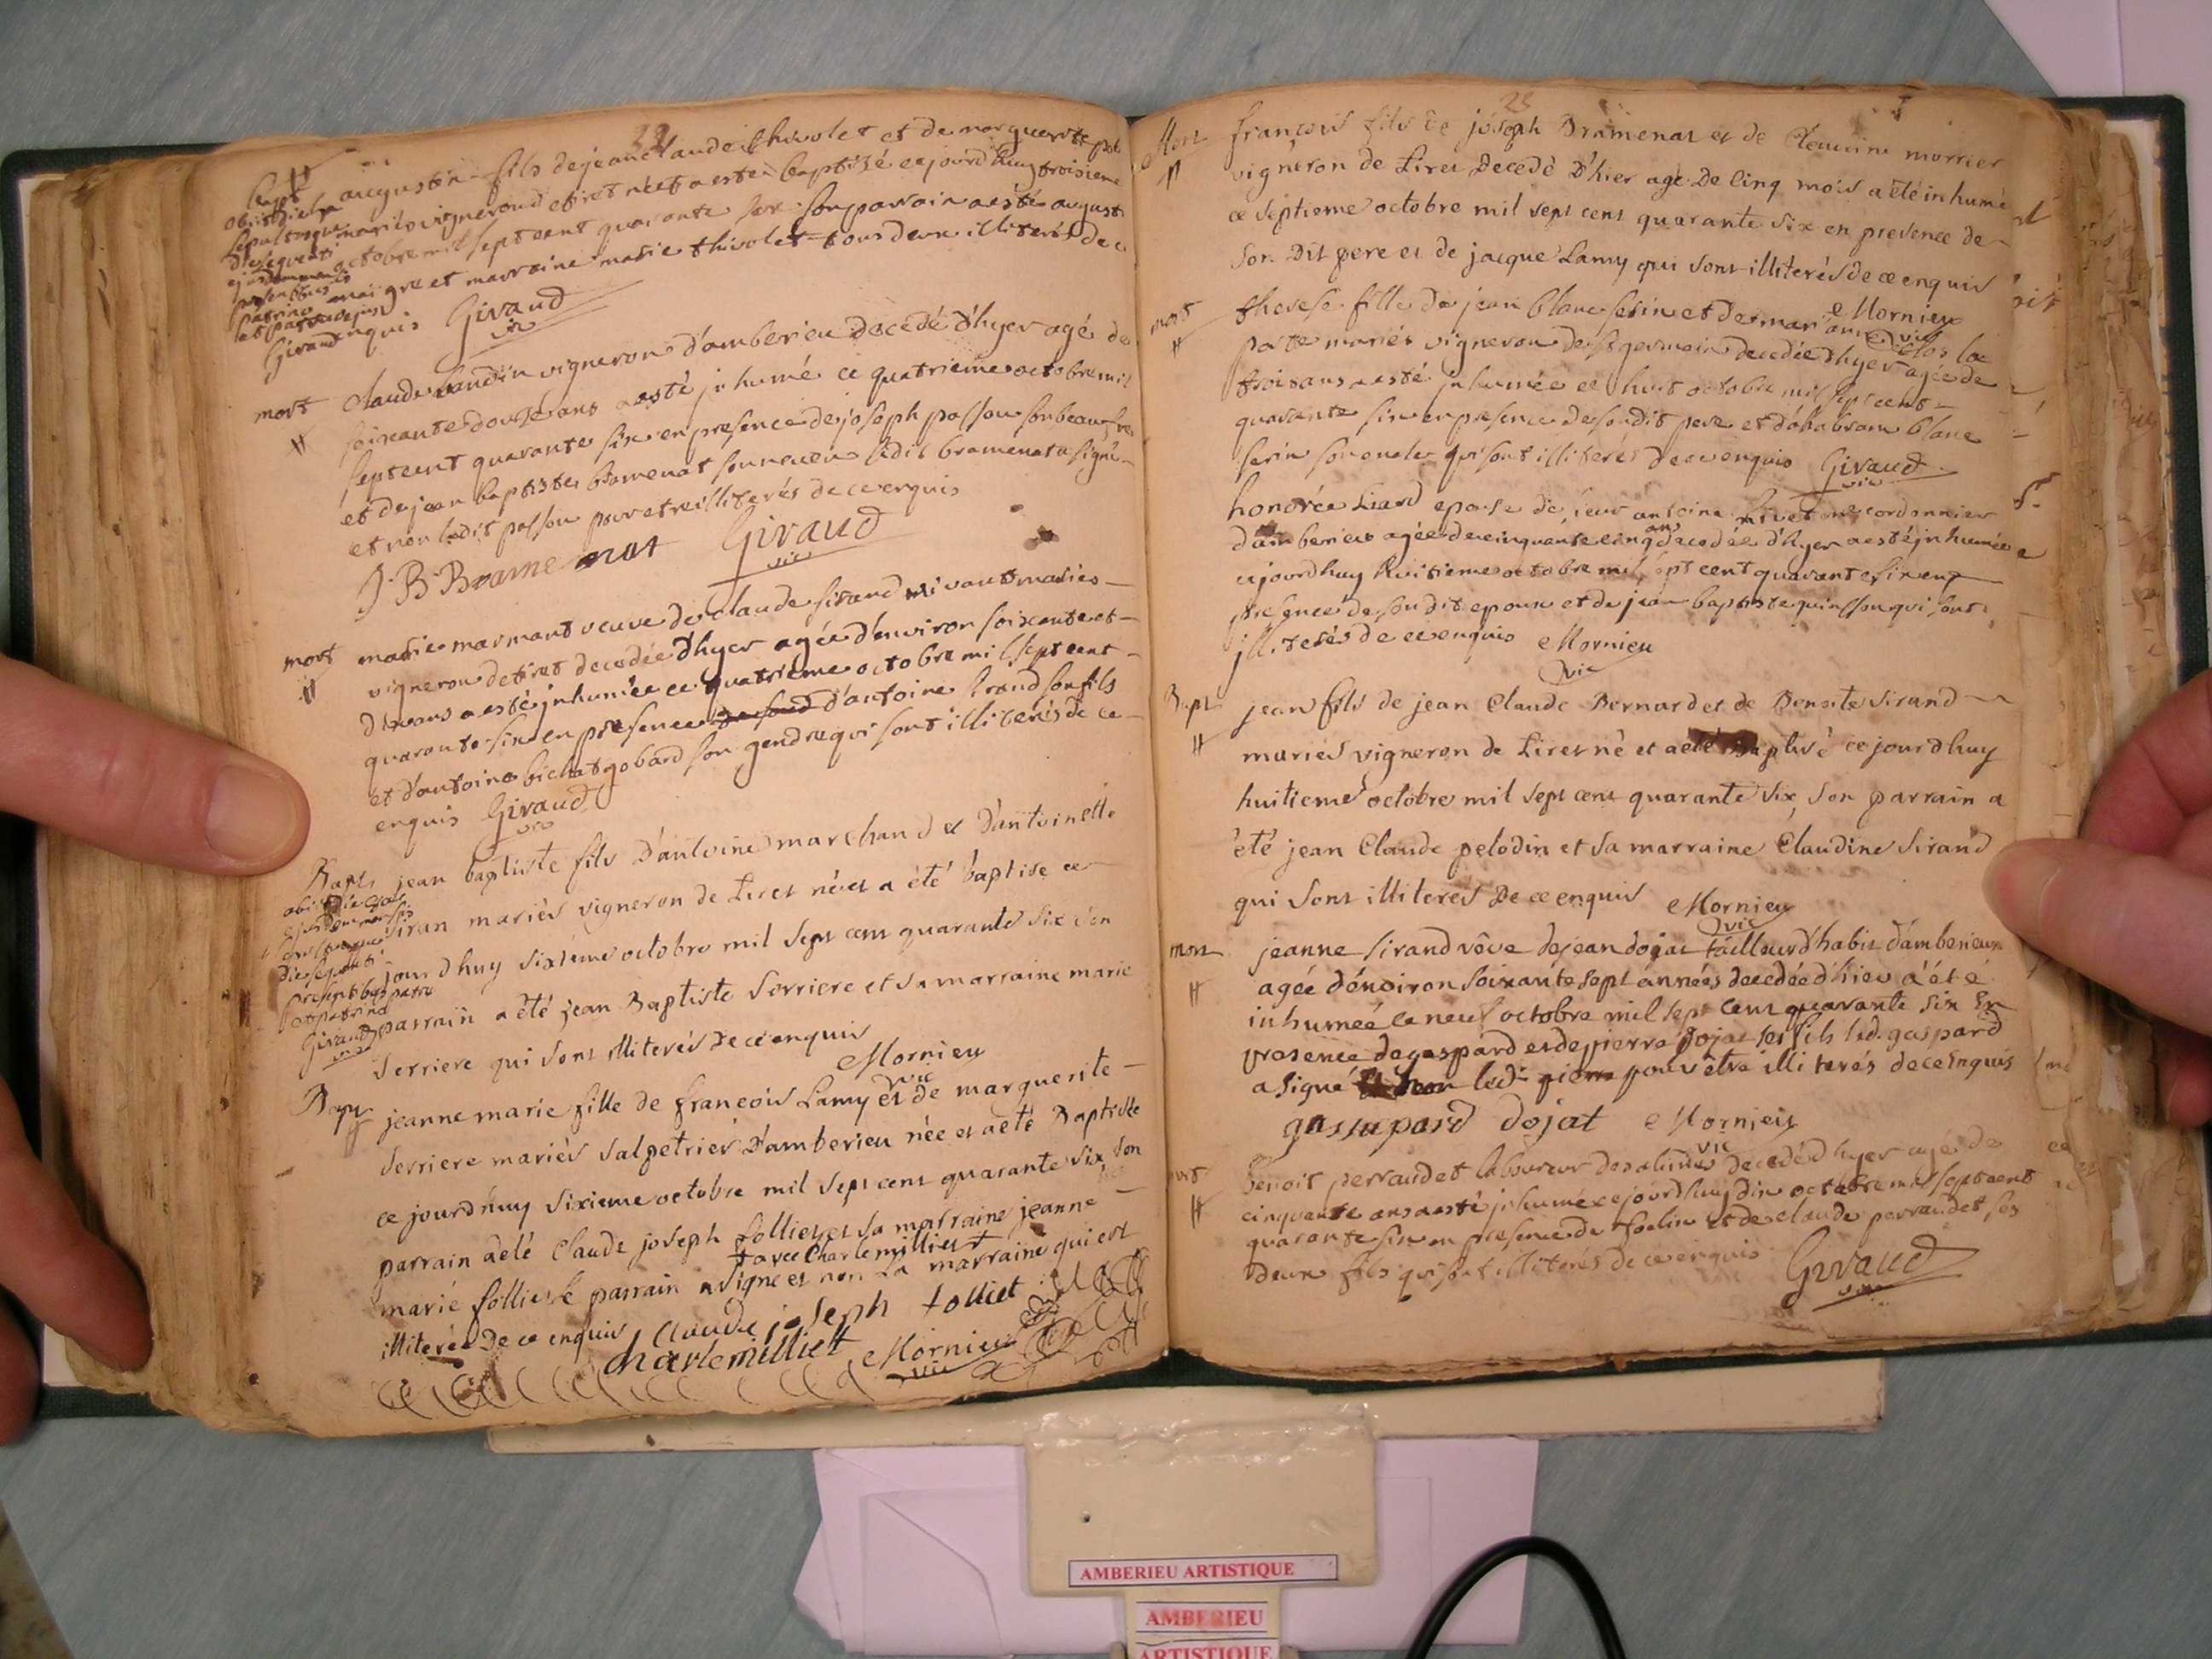 22
Bapt augustin fils de jean claude thivolet et de marguerite
mariés vigneron de tiret né et a esté baptisé ce jourdhuy troisieme
octobre mil sept cent quarante six son parrain a esté augusti
maigre et marraine marie thivolet tous deux illiterés de ce
enquis Givaud
vic
obiit die
sepultusque
die sequenti
ejusdem mensis
presentibus
patrino
et patre ejus
Givaud
mort claude vigneron d'amberieu decedé d'hyer agé de
soixante douse ans a esté inhumé ce quatrieme octobre mil
sept cent quarante six en presence de joseph passou son beau fre
et de jean baptiste bramenat son neveu ledit bramenat a signé
et non ledit passou pour etre illiterés de ce enquis
J B Bramenat Givaud
vic
mort marie marmant veuve de claude sirand vivant mariés
vigneron de tiret decedée d'hyer agée d'environ soixante et
dix ans a esté inhumée ce quatrieme octobre mil sept cent
quarante six en presence d'antoine sirand son fils
et d'antoine bichat gobard son gendre qui sont illiterés de ce
enquis Givaud
vic
Bapt jean baptiste fils D'antoine marchand et D'antoinette
siran mariés vigneron de Tiret né et a été baptisé ce
jourdhuy sixieme octobre mil sept cent quarante six son
parrain a été jean Baptiste Serriere et sa marraine marie
Serriere qui sont illiterés de ce enquis
Mornieu
vic
obiit die
ejusdem mensis
sepultusque
die sequenti
presentibus patre
et patrino
Givaud
vic
Bapt jeanne marie fille de françois Lamy et de marguerite
Serriere mariés salpetrier D'amberieu née et a été Baptisée
ce jourdhuy sixieme octobre mil sept cent quarante six son
parrain a été Claude joseph folliet et sa marraine jeanne
avec Charle milliet
marie folliet le parrain a signé et non la marraine qui est
illiterée De ce enquis Claude joseph folliet
charle milliet Mornieu
vic
23
Mort françois fils de joseph Bramenat et de Clemine morrier
vigneron de Tiret Decedé D'hier agé De cinq mois a été inhumé
ce septieme octobre mil sept cent quarante six en presence de
son Dit pere et de jacque Lamy qui sont illiterés de ce enquis
Mornieu
vic
mort therese fille de jean blanc serin et de marianne clos la
porte mariés vigneron de st germain decedée d'hyer agée de
trois ans a esté inhumée ce huit octobre mil sept cent
quarante six en presence de son dit pere et d'abraham blanc
serin son oncle qui sont illiterés de ce enquis Givaud
vic
honorée Liard epouse de sieur antoine me cordonnier
d'amberieu agée de cinquante cinq ans decedée d'hyer a esté inhumée
ce jourdhuy huitieme octobre mil sept cent quarante six en
presence de son dit epoux et de jean baptiste quinsson qui sont
illiterés de ce enquis Mornieu
vic
Bapt jean fils de jean Claude Bernard et de Benoite sirand
mariés vigneron de Tiret né et a été baptisé ce jourdhuy
huitieme octobre mil sept cent quarante six, son parrain a
été jean Claude pelodin et sa marraine Claudine Sirand
qui sont illiterés De ce enquis Mornieu
vic
mort jeanne sirand vêve de jean dojat tailleur d'habit d'amberieux
agée d'environ soixante sept années decedée d'hier a été
inhumée le neuf octobre mil sept cent quarante six En
presence de gaspard et de pierre Dojat ses fils led. gaspard
a signé Et non led. pierre pour être illiterés de ce Enquis
gassapard dojat Mornieu
vic
mort benoit perraudet laboureur des alimes decedé d'hyer agé de
cinquante ans a esté inhumé ce jourdhuy dix octobre mil sept cent
quarante six en presence de joslin et de claude perraudet ses
deux fils qui sont illiterés de ce enquis Givaud
vic
AMBERIEU ARTISTIQUE
AMBERIEU
ARTISTIQUE